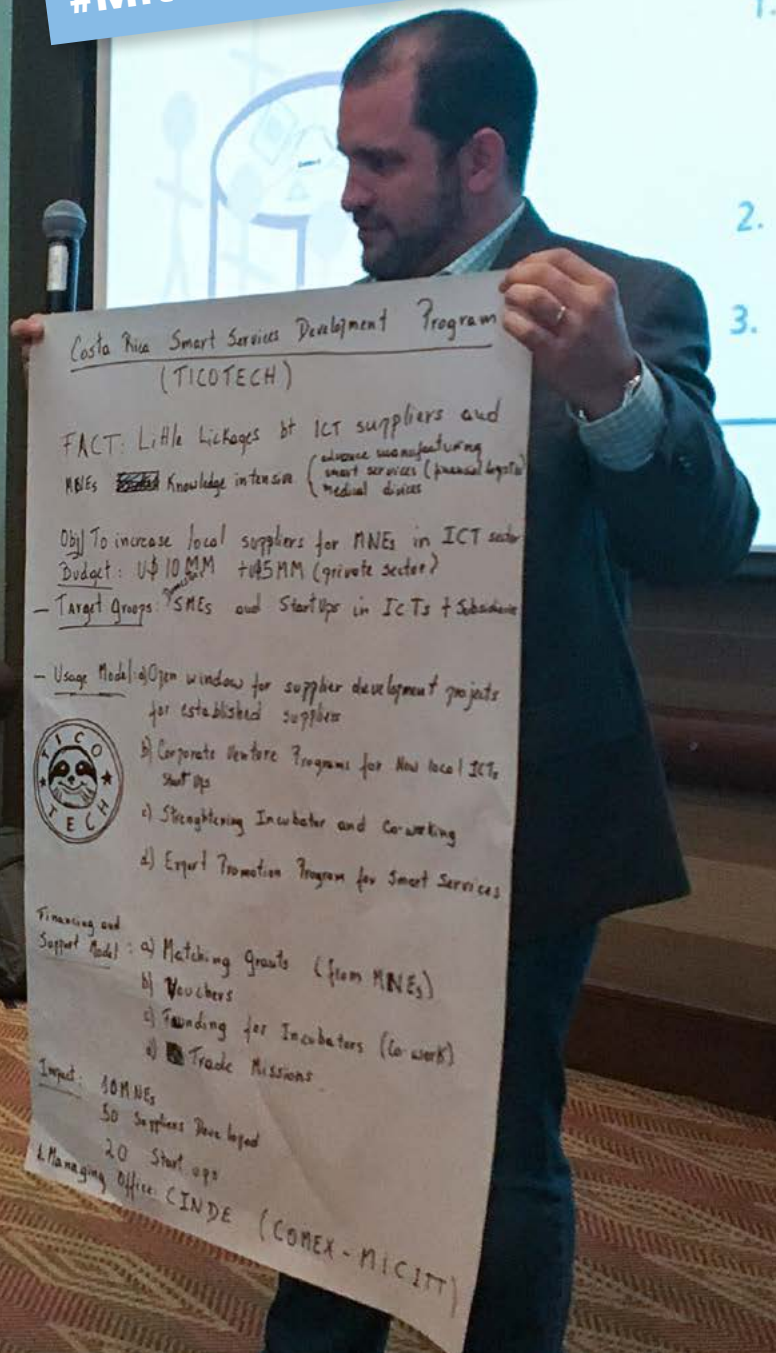 1.
2.
3.
Costa Rica Smart Services Development Program
(TICOTECH)
FACT: Little Lickages bt ICT suppliers and
MNEs Knowledge intensive ( advance manufacturing
smart services (financial logistic)
medical divices
Obj) To increase local suppliers for MNEs in ICT sector
Budget: U$ 10 MM + U$5MM (private sector)
- Target Groops: SMEs and StartUps in ICTs + Subsidiaries
- Usage Model: a) Open window for supplier development projects
for established suppliers
b) Corporate Venture Programs for New local ICTs
Start Ups
c) Strenghtening Incubator and Co-working
d) Export Promotion Program for Smart Services
TICO
TECH
Financing and
Support Model: a) Matching Grants (from MNEs)
b) Vouchers
c) Founding for Incubators (Co-work)
d) Trade Missions
Impact: 10 MNEs
50 Suppliers Developed
20 Start ups
& Managing Office: CINDE (COMEX - MICITT)